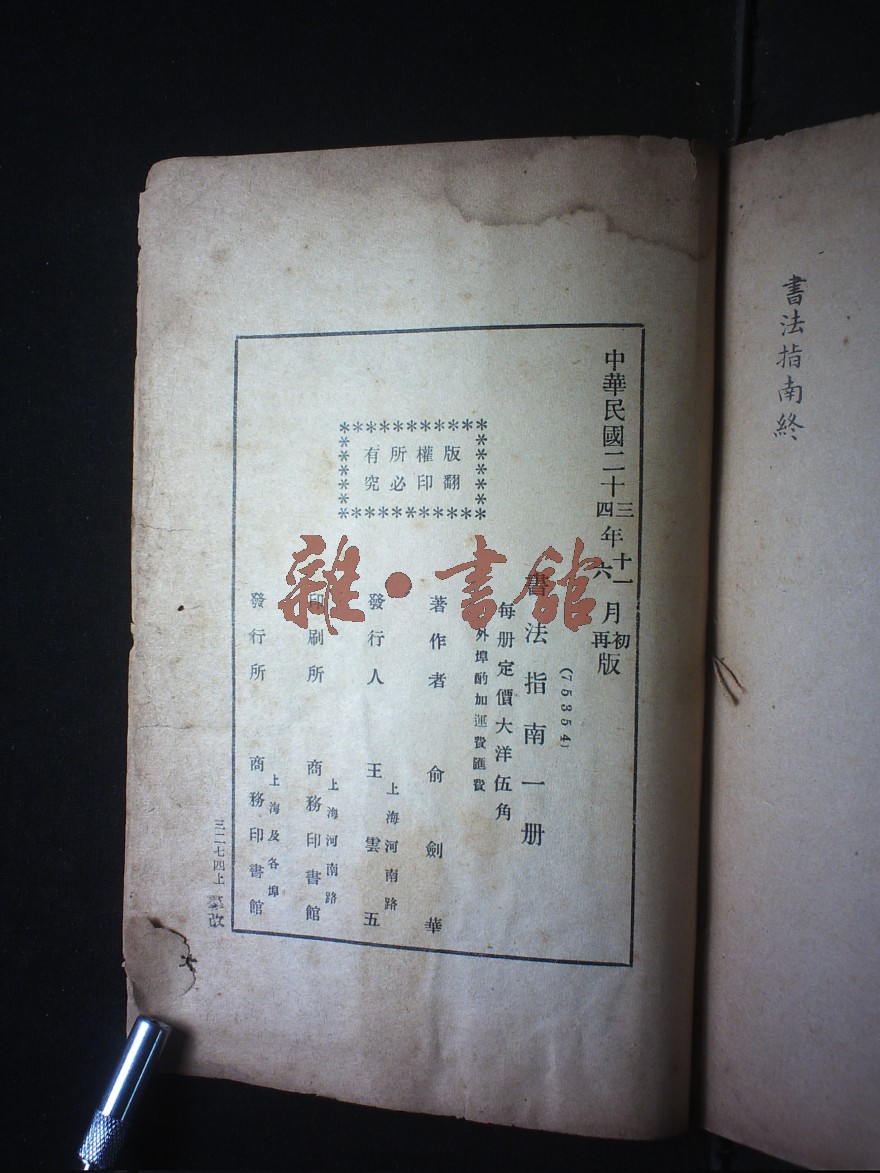 書法指南終
中華民國二十三年十一月初版
四 六 再
(75354)
書法指南一册
每册定價大洋伍角
外埠酌加運費匯費
版權所有
翻印必究
著作者 俞劍華
發行人 王雲五
上海河南路
印刷所 商務印書館
上海河南路
發行所 商務印書館
上海及各埠
三二七四上
雜·書館